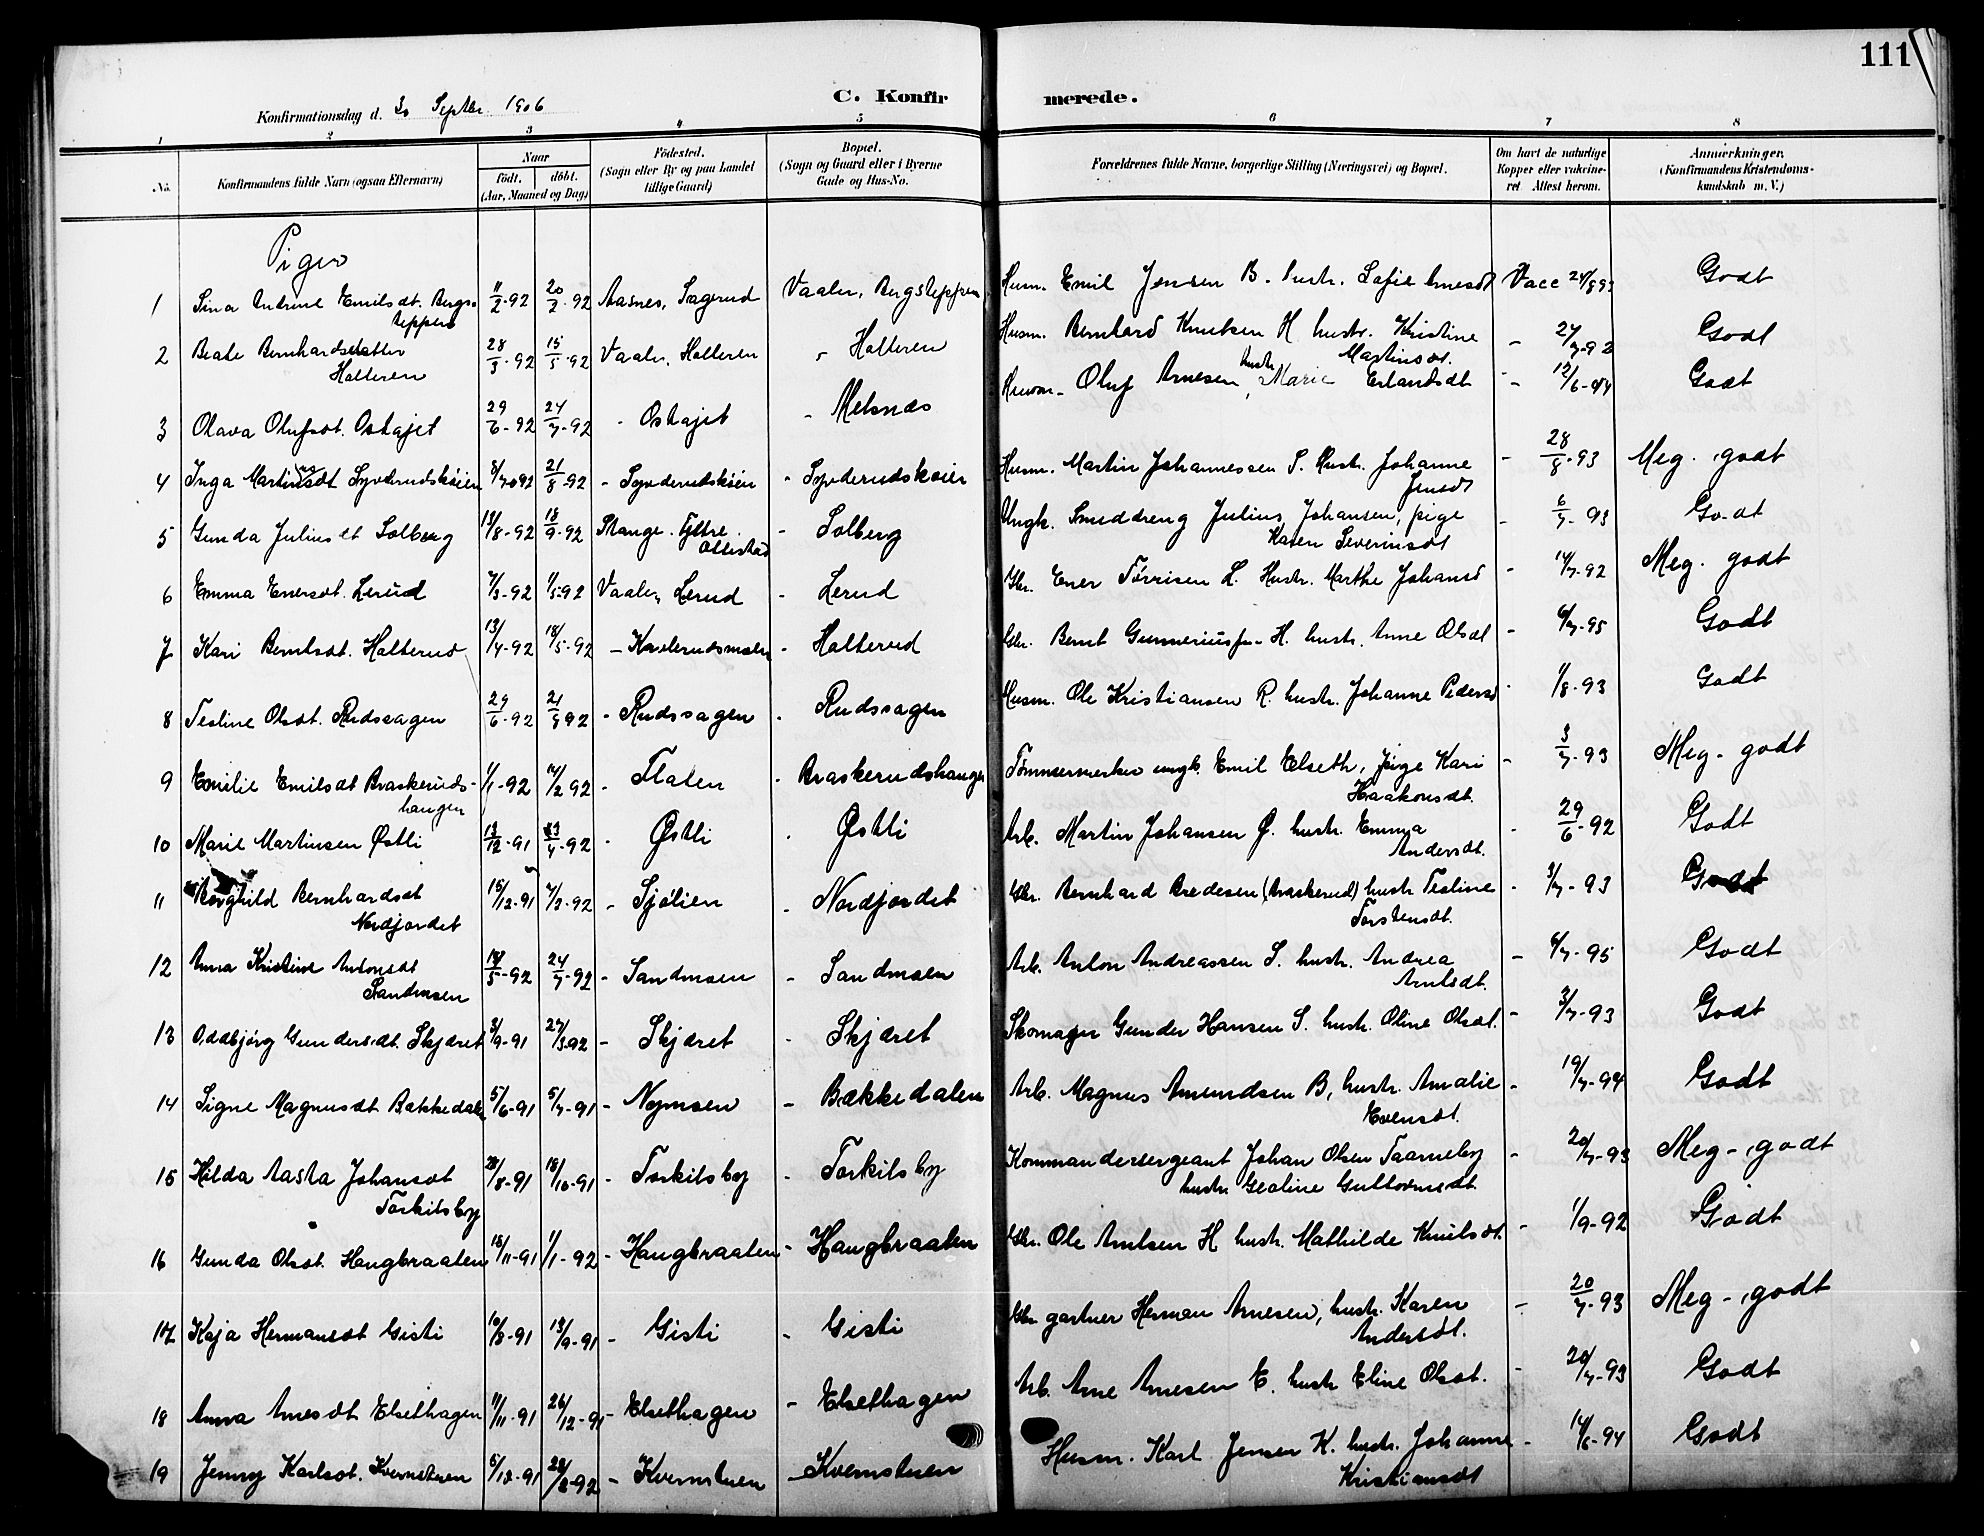 111
C. Konfirmerede.
Konfirmationsdag d. 30 Septbr. 1906
1 2 3 4 5 6 7 8
No. Konfirmandens fulde Navn (ogsaa Efternavn) Naar født. døbt. (Aar, Maaned og Dag) Fødested. (Sogn eller By og paa Landet tillige Gaard) Bopæl. (Sogn og Gaard eller i Byerne Gade og Hus-No. Forældrenes fulde Navne, borgerlige Stilling (Næringsvei) og Bopæl. Om havt de naturlige Kopper eller vakcineret. Attest herom. Anmærkninger. (Konfirmandens Kristendomskundskab m. V.)
Piger
1 Sina Andrine Emilsdt. Bergs- 11/2-92 20/2-92 Aasnes, Sagerud Vaaler, Bergsteppen Husm. Emil Jensen B. hustr. Sofie Arnesdt Vacc 24/8 93 Godt
teppen
2 Beate Bernhardsdatter 28/3-92 15/5-92 Vaaler, Holteren - Holteren Husm. Bernhard Knutsen H hustr. Kristine - Godt
Holteren Martinsdt.
3 Olava Olufsdt. Oshajet 29/6-92 24/7-92 - Oshajet - Melsnæs Husm. Oluf Arnesen, hustr. Marie Erlandsdt - 12/6-94 Godt
4 Inga Martinsdt Syverudskøien 8/7-92 21/8-92 - Syverudskøien - Syverudskøien Husm. Martin Johannessen S. Hustr. Johanne - 28/8-93 Meg. godt
Jensdt
5 Gunda Juliusdt Solberg 13/8-92 18/9-92 Stange. Ottestad - Solberg Ungk. Smeddreng Julius Johansen, pige - 6/7-93 Godt
Karen Severinsdt
6 Emma Enersdt. Lerud 7/3-92 1/5-92 Vaaler, Lerud - Lerud Gbr. Ener Tørrisen L. Hustr. Marthe Johansd - 14/7-92 Meg. godt
7 Kari Berntsdt. Halterud 13/4-92 18/5-92 - Kavlerudsmoen - Halterud Gbr. Bernt Gunneriusen H. hustr. Anne Olsdt - 6/7-95 Godt
8 Tesline Olsdt. Rudssagen 29/6-92 - Rudssagen - Rudssagen Husm. Ole Kristiansen R. hustr. Johanne Pedersd - 1/8-93 Godt
9 Emilie Emilsdt Braskeruds- 1/1-92 14/2 92 - Flaten - Braskerudshangen Tømmermerker ungk. Emil Elseth, Pige Kari - 3/7-93 Meg- godt
hangen Haakonsdt.
10 Marie Martinsen Østli 13/12-91 - Østli - Østli Arb. Martin Johansen Ø. hustr. Emma - 29/6-92 Godt
Andersdt.
11 Borghild Bernhardsdt 15/12-91 7/2-92 - Sjølien - Nordjordet Gbr. Bernhard Bredesen (Braskerud) hustr Tesline - 3/7-93 Godt
Nordjordet Torstensdt.
12 Anna Kristine Antonsdt 24/7-92 - Sandmoen - Sandmoen Arb. Anton Andreassen S. hustr. Andrea - 6/7-95 Godt
Sandmoen Arntsdt.
13 Oddbjørg Gundersdt. Skjæret 3/9-91 27/3 92 - Skjæret - Skjæret Skomager Gunder Hansen S. hustr. Oline Olsdt. - 3/7-93 Godt
14 Signe Magnusdt Bækkedalen 5/6-91 5/7-91 - Nymoen - Bækkedalen Arb. Magnus Amundsen B, hustr. Amalie - 19/7-94 Godt
Evensdt.
15 Hilda Aasta Johansdt 28/8-91 18/10-91 - Torkilsby - Torkilsby Kommandersergeant Johan Olsen Taarneby - 20/7-93 Meg-, godt
Torkilsby hustr. Geoline Guttormsdt.
16 Gunda Olsdt. Haugbraaten 18/11-91 1/1-92 - Haugbraaten - Haugbraaten Gbr. Ole Arntsen H hustr. Mathilde Knutsdt. - 1/9-92 Godt
17 Kaja Hermansdt Gisti 10/8-91 13/9-91 - Gisti - Gisti Gbr gartner Herman Arnesen, hustr. Karen - 20/7-93 Meg-, godt
Andersdt.
18 Anna Arnesdt Elsethagen 11/11-91 26/12-91 - Elsethagen - Elsethagen Arb. Arne Arnesen E. hustr Eline Olsdt. - 20/7-93 Godt
19 Jenny Karlsdt. Kvernstuen 5/12-91 28/2-92 - Kvernstuen - Kvernstuen Husm. Karl Jensen K. hustr. Johanne - 14/6-94 Godt
Kristiansdt